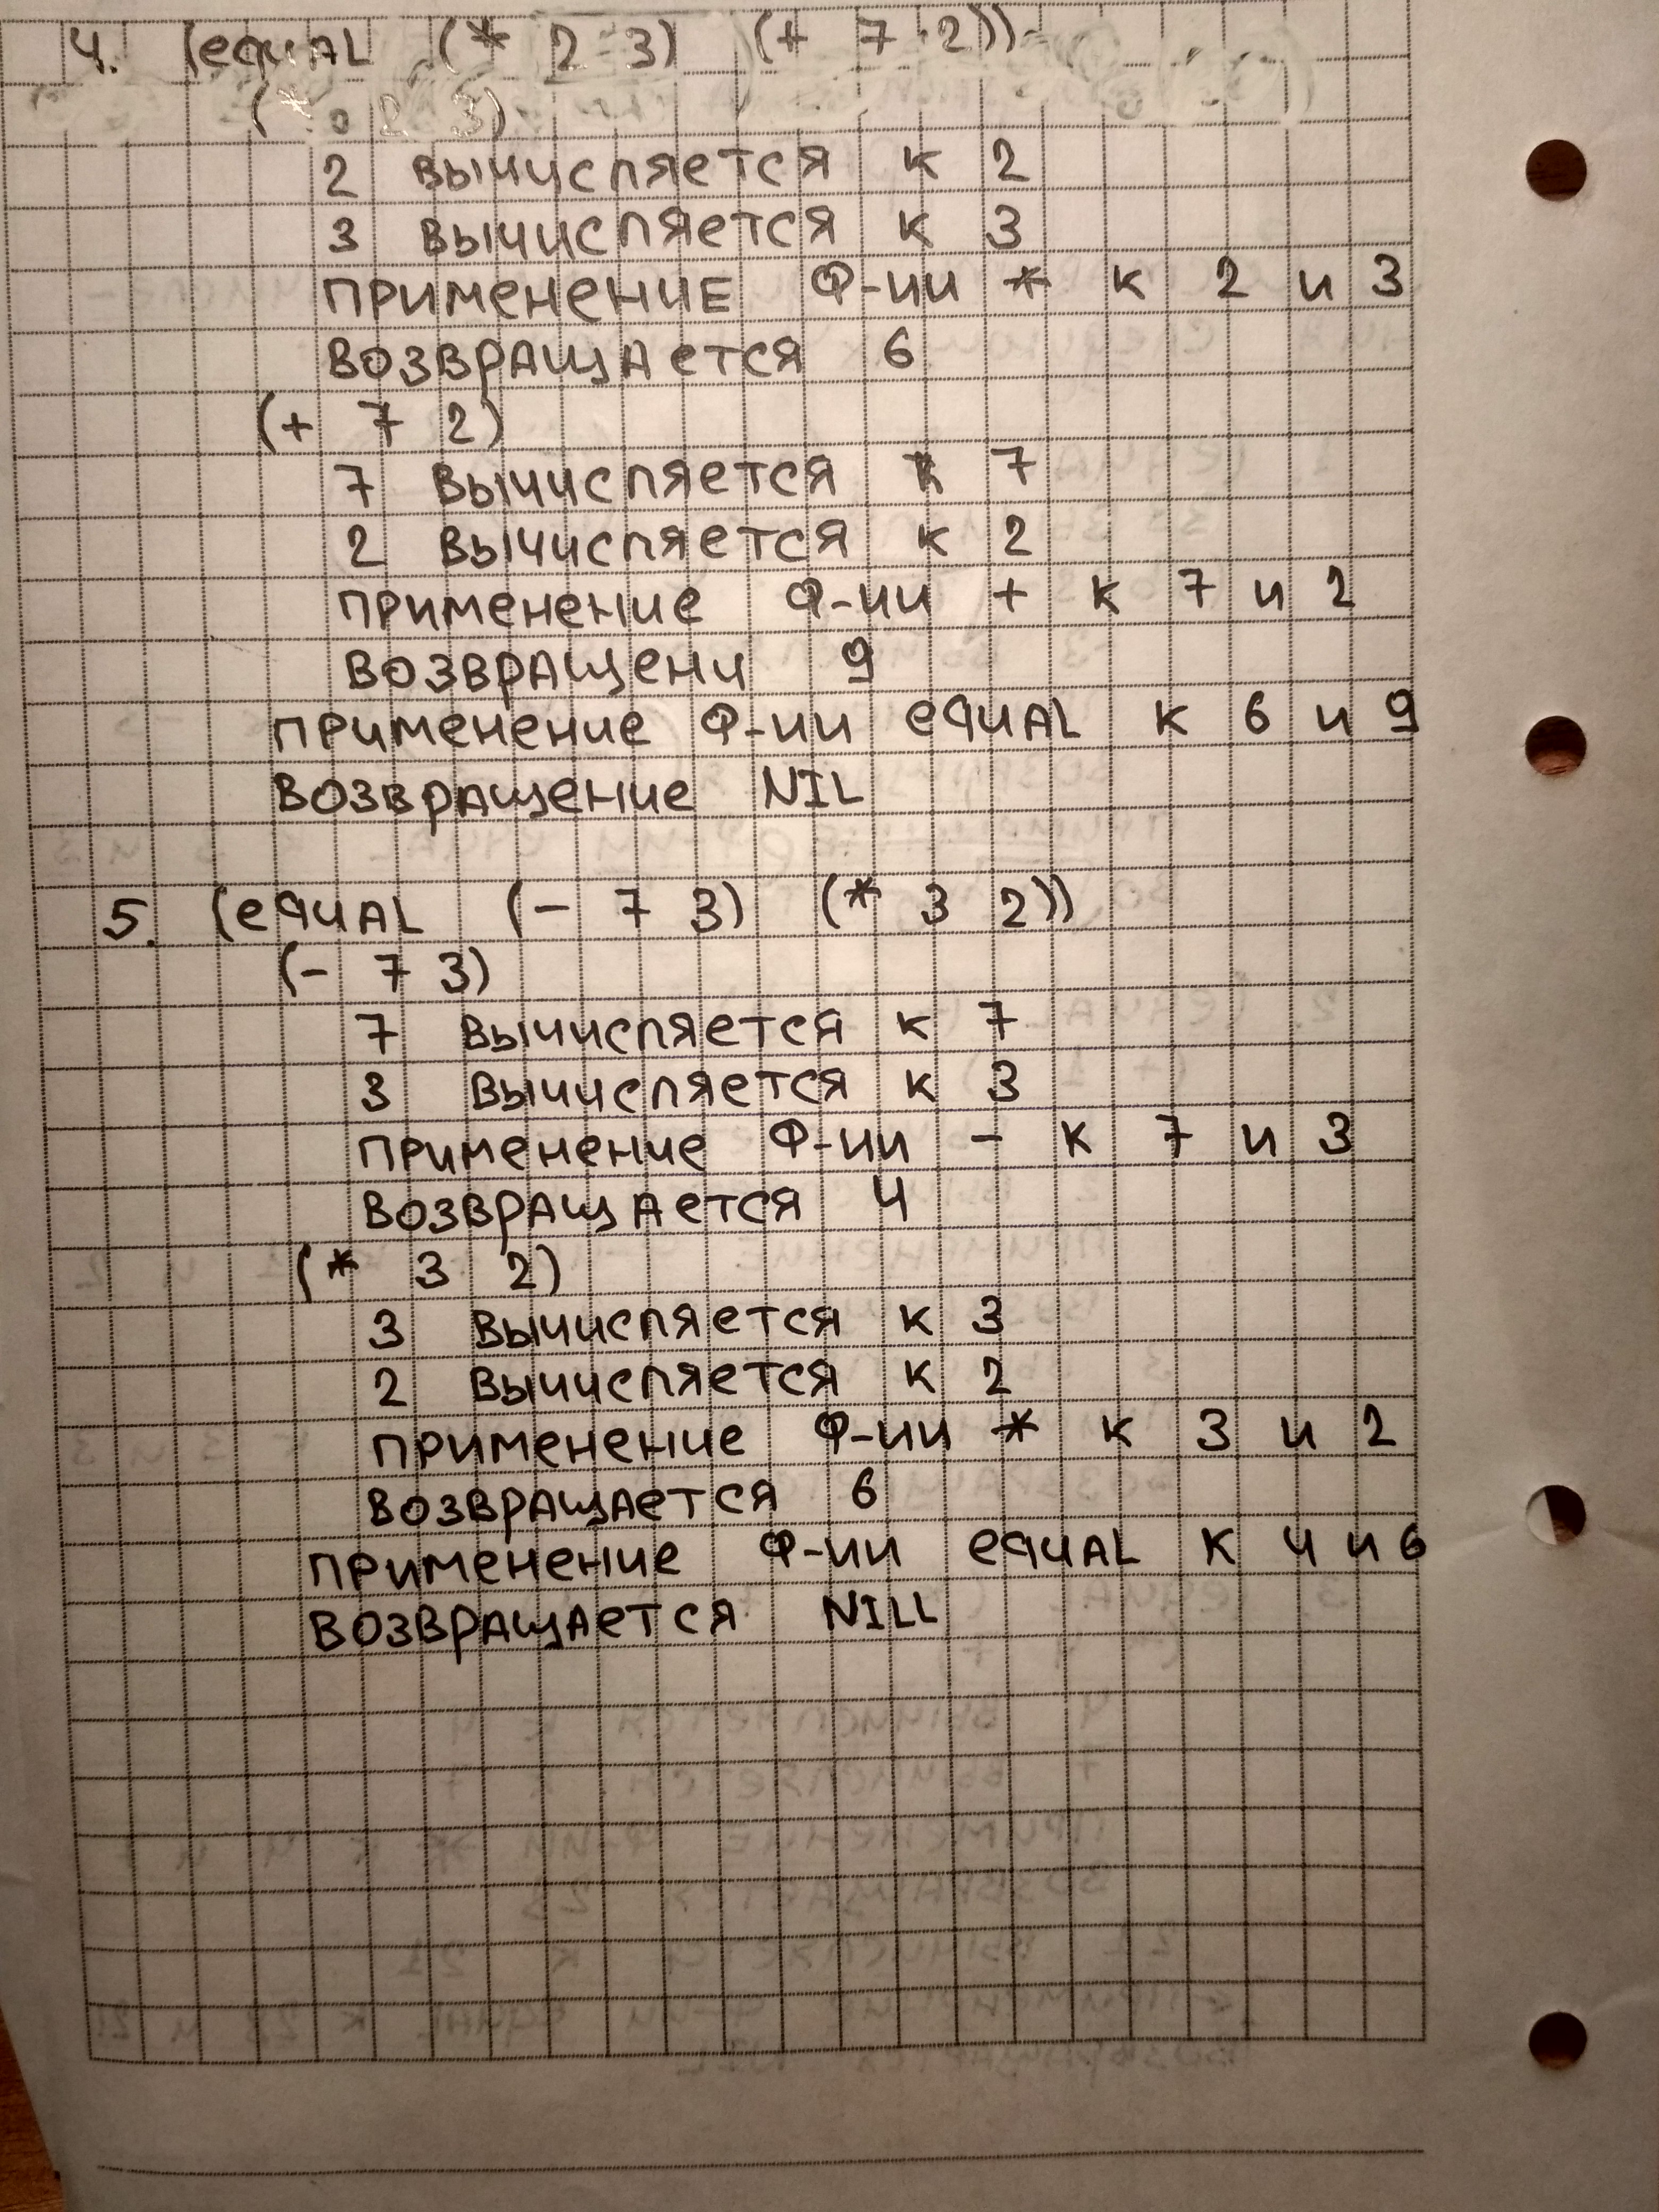 4. (equAL (* 2 3) (+ 7 2))
(* 2 3)
2 вычисляется к 2
3 вычисляется к 3
применениЕ Ф-ии * к 2 и 3
возвращается 6
(+ 7 2)
7 вычисляется к 7
2 вычисляется к 2
применение Ф-ии + к 7 и 2
возвращени 9
применение Ф-ии equAL к 6 и 9
возвращение NIL
5. (equAL (- 7 3) (* 3 2))
(- 7 3)
7 вычисляется к 7
3 вычисляется к 3
применение Ф-ии - к 7 и 3
возвращается 4
(* 3 2)
3 вычисляется к 3
2 вычисляется к 2
применение Ф-ии * к 3 и 2
возвращается 6
применение Ф-ии equAL к 4 и 6
возвращается NILL